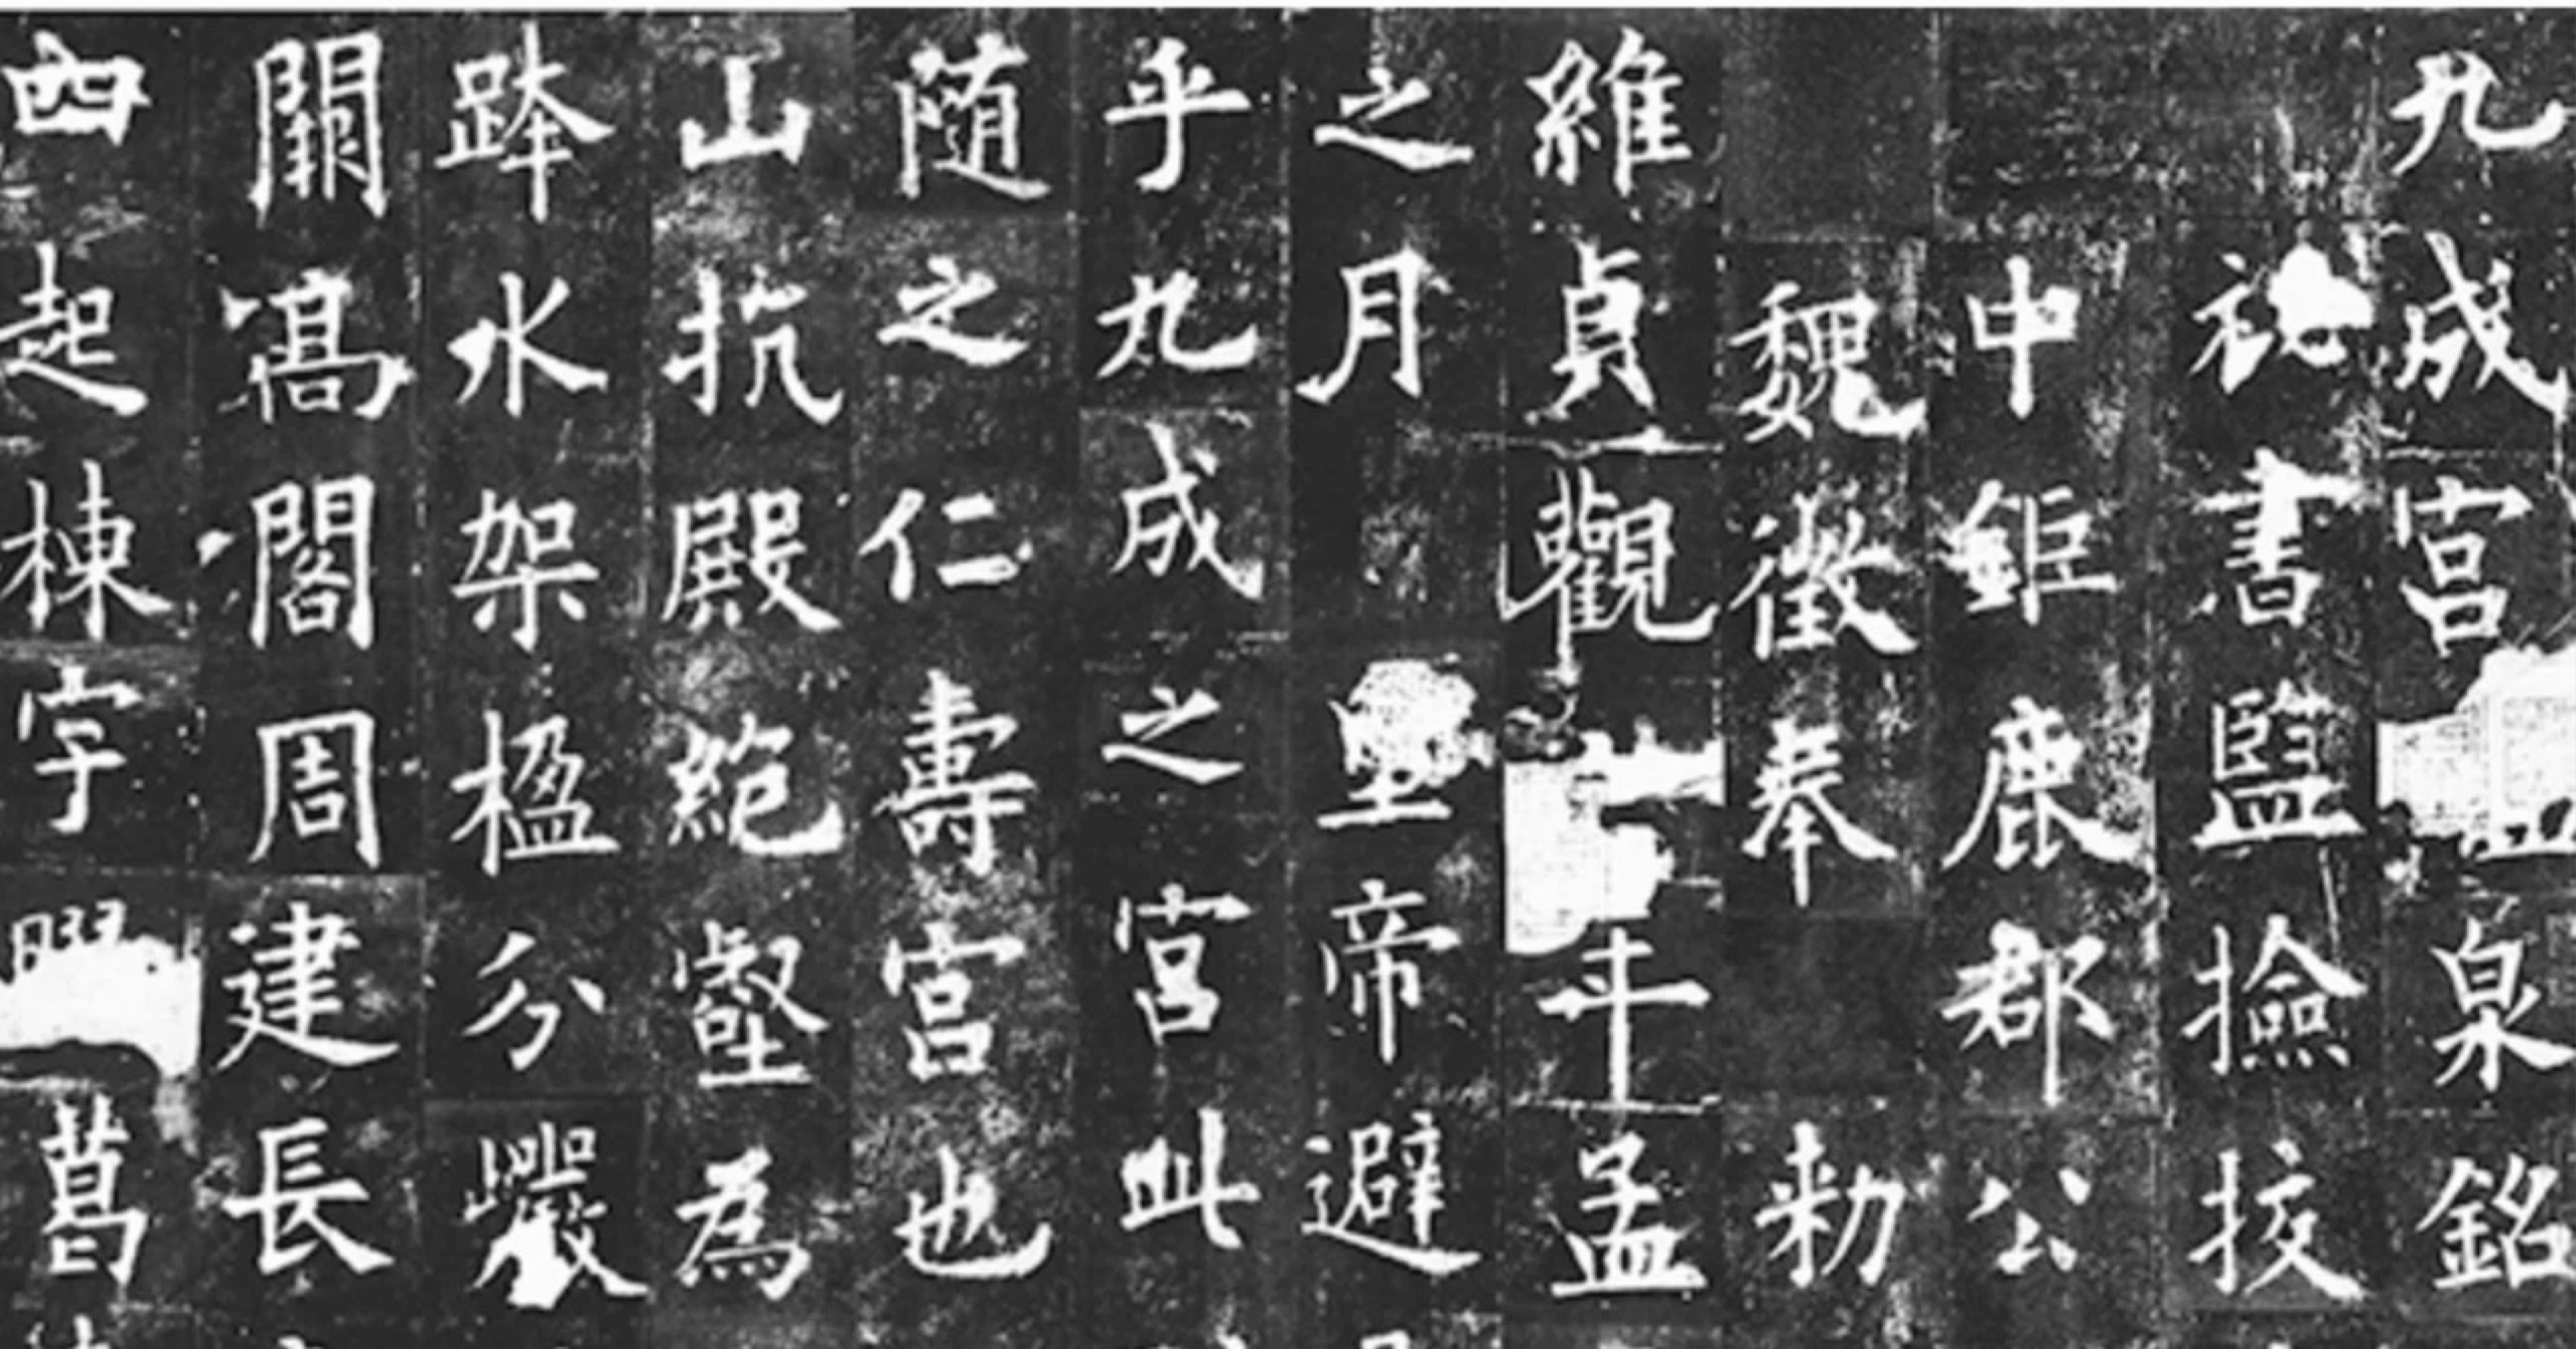 九成宮泉銘
祕書監撿挍
中鉅鹿郡公
魏徵奉勑
維貞觀年孟
之月皇帝避
乎九成之宮此
随之仁壽宮也
山抗殿絕壑為
跨水架楹分巖
闕高閣周建長
四起棟宇膠葛